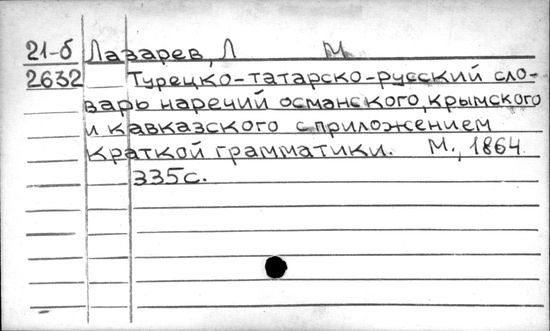 21-б Лазарев, Л М.
2632 Турецко-татарско-русский сло-
варь наречий османского, крымского
и кавказского с приложением
краткой грамматики. М., 1864
335с.